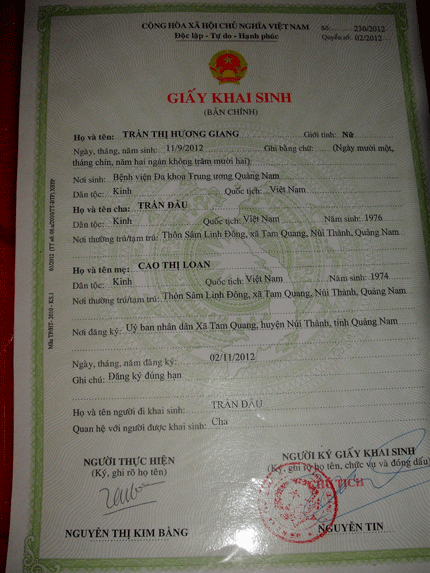 CỘNG HÒA XÃ HỘI CHỦ NGHĨA VIỆT NAM
Độc lập - Tự do - Hạnh phúc
Số: 230/2012
Quyển số: 02/2012
GIẤY KHAI SINH
(BẢN CHÍNH)
Họ và tên: TRẦN THỊ HƯƠNG GIANG Giới tính: Nữ
Ngày, tháng, năm sinh: 11/9/2012 Ghi bằng chữ: (Ngày mười một,
tháng chín, năm hai ngàn không trăm mười hai)
Nơi sinh: Bệnh viện Đa khoa Trung ương Quảng Nam
Dân tộc: Kinh Quốc tịch: Việt Nam
Họ và tên cha: TRẦN ĐẤU
Dân tộc: Kinh Quốc tịch: Việt Nam Năm sinh: 1976
Nơi thường trú/tạm trú: Thôn Sâm Linh Đông, xã Tam Quang, Núi Thành, Quảng Nam
Họ và tên mẹ: CAO THỊ LOAN
Dân tộc: Kinh Quốc tịch: Việt Nam Năm sinh: 1974
Nơi thường trú/tạm trú: Thôn Sâm Linh Đông, xã Tam Quang, Núi Thành, Quảng Nam
Nơi đăng ký: Uỷ ban nhân dân Xã Tam Quang, huyện Núi Thành, tỉnh Quảng Nam
Ngày, tháng, năm đăng ký: 02/11/2012
Ghi chú: Đăng ký đúng hạn
Họ và tên người đi khai sinh: TRẦN ĐẤU
Quan hệ với người được khai sinh: Cha
NGƯỜI THỰC HIỆN
(Ký, ghi rõ họ tên)
NGUYỄN THỊ KIM BẰNG
NGƯỜI KÝ GIẤY KHAI SINH
(Ký, ghi rõ họ tên, chức vụ và đóng dấu)
CHỦ TỊCH
NGUYỄN TIN